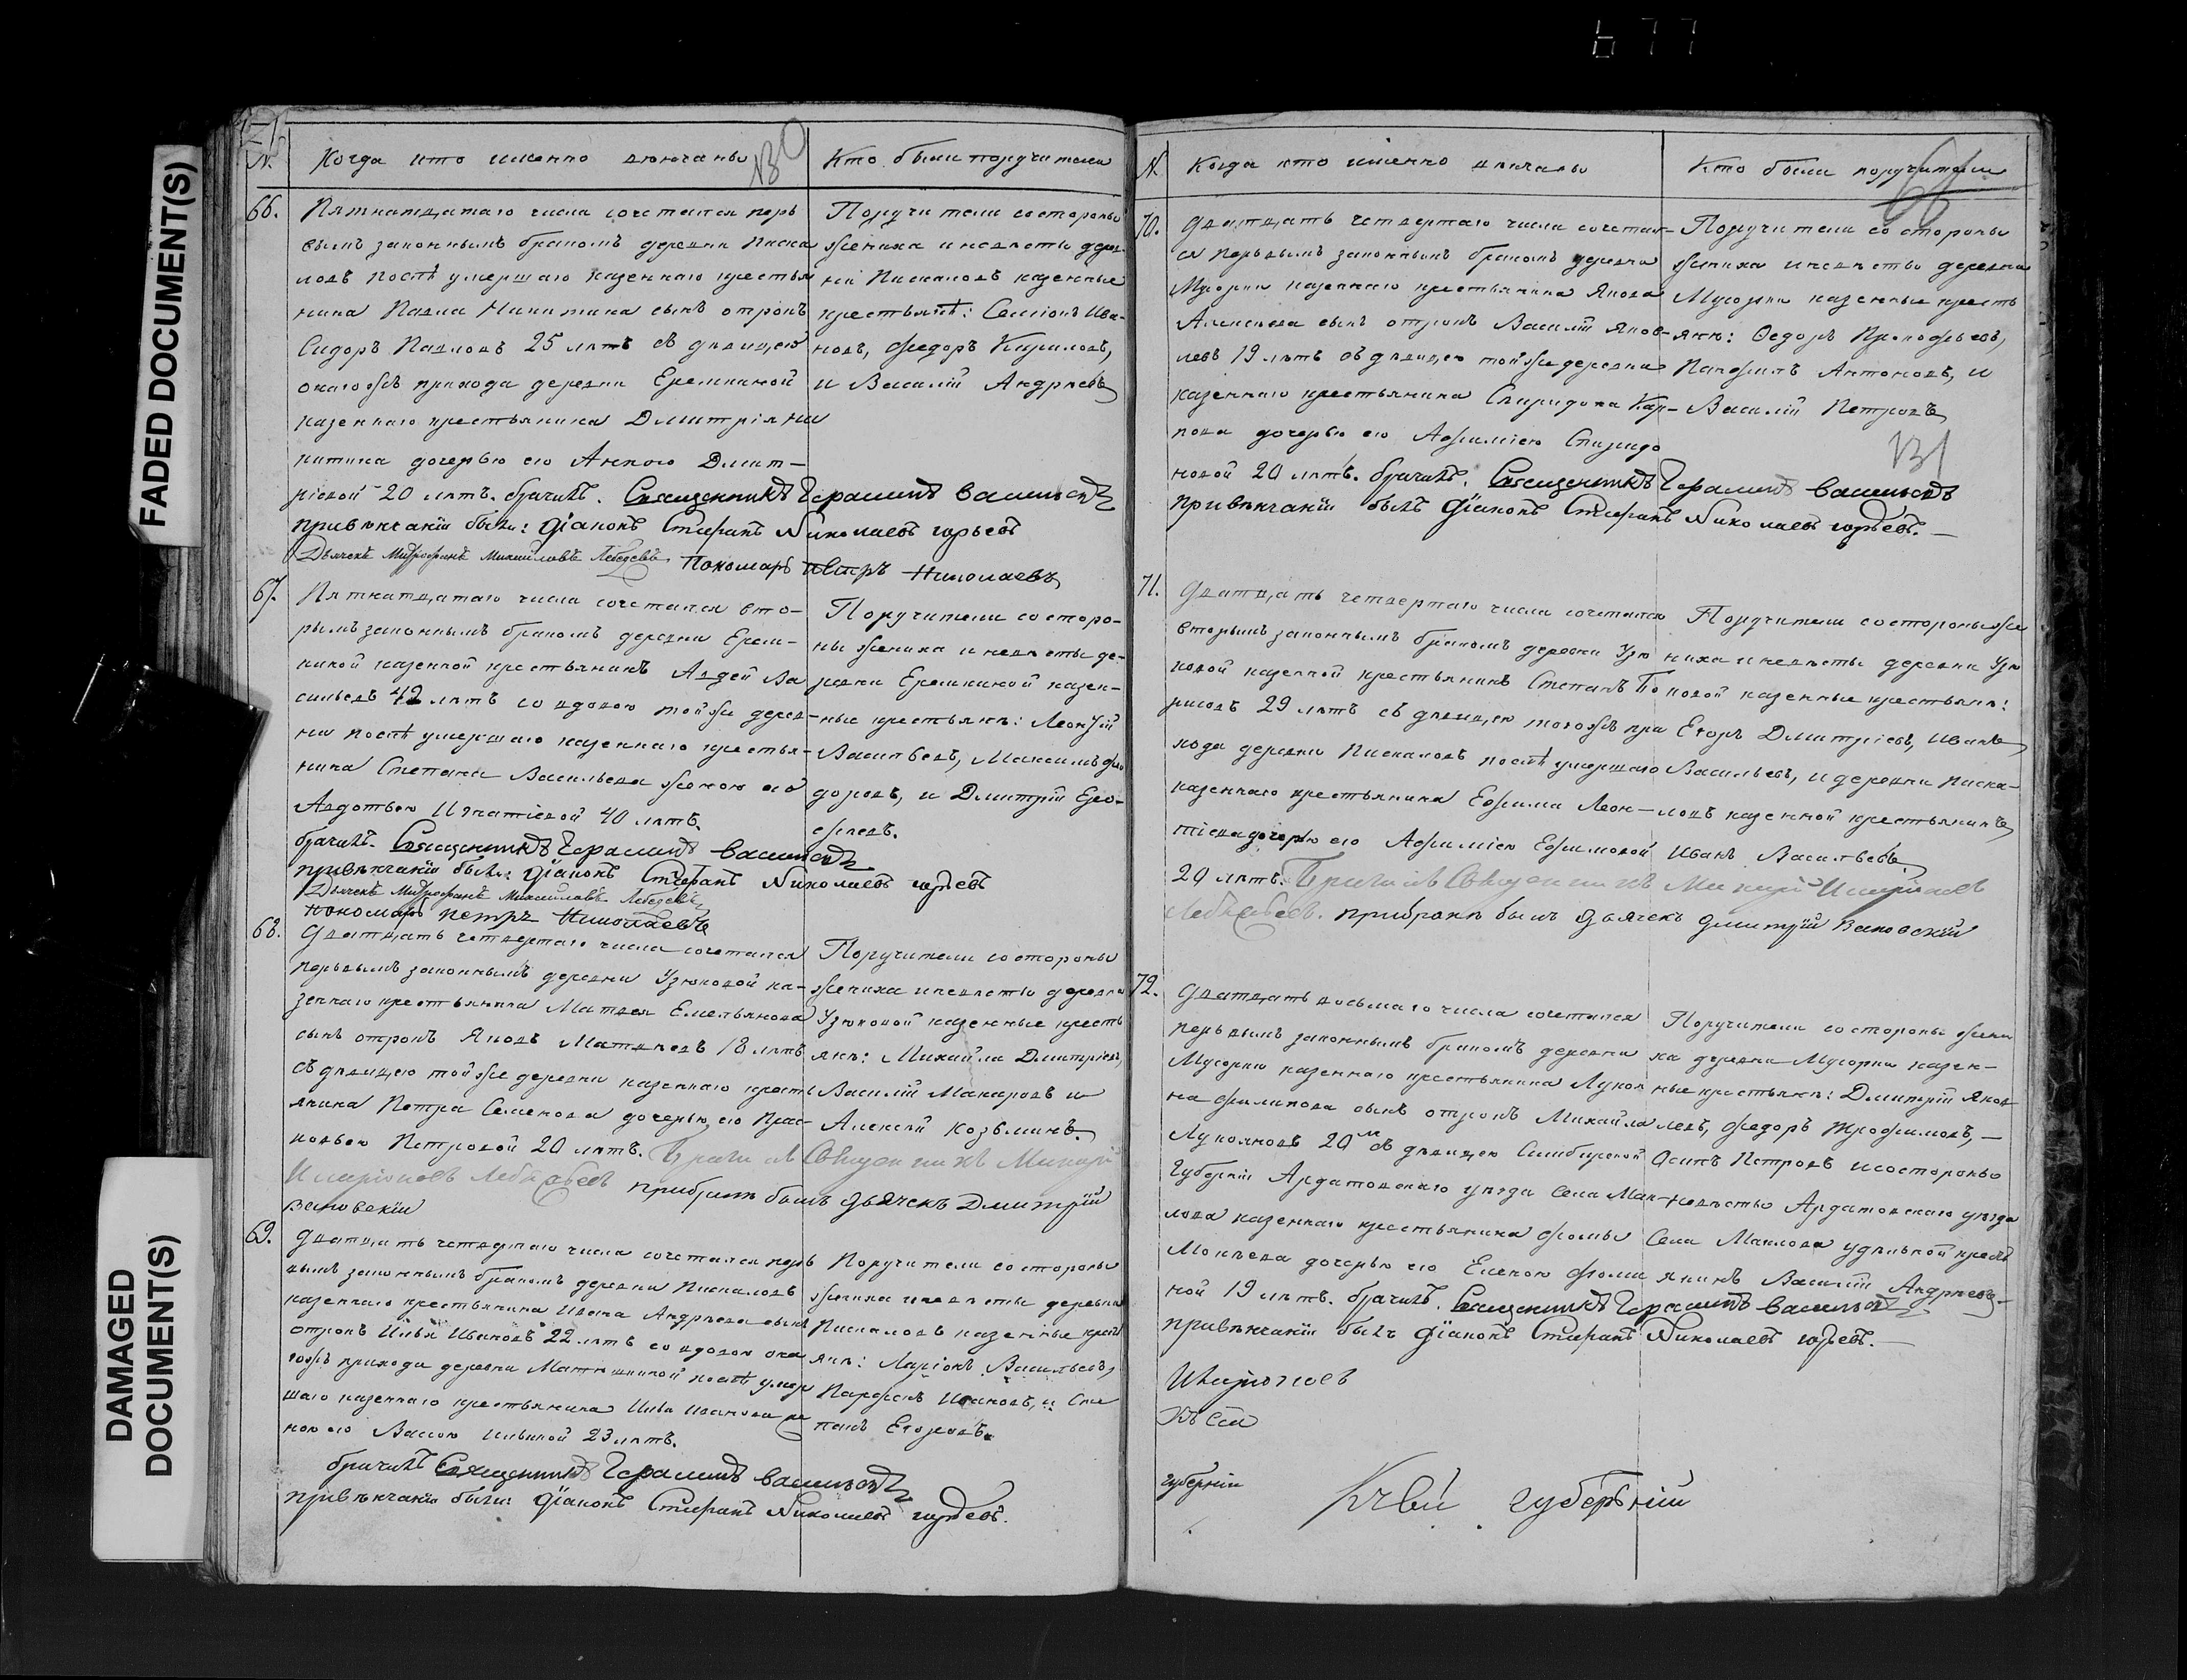 677
FADED DOCUMENT(S)
DAMAGED
DOCUMENT(S)
N.
Когда кто именно венчаны
130
Кто были поручители
66.
Пятнатцатаго числа сочетался пер
вымъ законнымъ бракомъ деревни Писка
ловъ послѣ умершаго казеннаго крестья
нина Павла Никитина сынъ отрокъ
Сидоръ Павловъ 25 лѣтъ съ дѣвицею
онагожъ прихода деревни Еремкиной
казеннаго крестьянина Дмитрія Ни
китина дочерью его Анною Дмит-
ріевой 20 лѣтъ. брачилъ. Священникъ Герасимъ Васильевъ
привѣнчаніи были: Діаконъ Стефанъ Николаевъ
Дьячекъ Митрофанъ Михайловъ Лебедевъ Пономарь Петръ Николаевъ
Поручители состороны
жениха и невѣсты дерев
ни Пискаловъ казенные
крестьянѣ: Семіонъ Ива-
новъ, Федоръ Кириловъ,
и Василій Андрѣевъ
67.
Пятнатцатаго числа сочетался вто-
рымъ законнымъ бракомъ деревни Ерем-
киной казенной крестьянинъ Авдей Ва
сильевъ 42 лѣтъ со вдовою тойже дерев-
ни послѣ умершаго казеннаго крестья-
нина Степана Васильева женою его
Авдотьею Игнатіевой 40 лѣтъ.
брачилъ. Священникъ Герасимъ Васильевъ
привѣнчаніи были: Діаконъ Стефанъ Николаевъ
Дьячекъ Митрофанъ Михайловъ Лебедевъ
Пономарь Петръ Николаевъ
Поручители состоро-
ны жениха и невѣсты де-
ревни Еремкиной казен-
ные крестьянѣ: Леонтій
Васильевъ, Максимъ Фе
доровъ, и Дмитрій
68.
Дватцать четвертаго числа сочетался
первымъ законнымъ деревни Узюковой ка-
зеннаго крестьянина Матвея Емельянова
сынъ отрокъ Яковъ Матвѣевъ 18 лѣтъ
съ дѣвицею тойже деревни казеннаго кресть
янина Петра Семенова дочерью его Прас-
ковьею Петровой 20 лѣтъ. Брачилъ Священникъ
прибракѣ былъ Дьячекъ Дмитрій
Поручители состороны
жениха и невѣсты деревни
Узюковой казенные кресть
янѣ: Михайла Дмитріевъ,
Василій Макаровъ и
Алексѣй Козьминъ.
69.
Дватцать четвертаго числа сочетался перв
вымъ законнымъ бракомъ деревни Пискаловъ
казеннаго крестьянина Ивана Андрѣева сынъ
отрокъ Илья Ивановъ 22 лѣтъ со вдовою она
гожъ прихода деревни послѣ умер
шаго казеннаго крестьянина Ильи Иванова же
ною его Васою Ильиной 23 лѣтъ.
брачилъ Священникъ Герасимъ Васильевъ
привѣнчаніи были: Діаконъ Стефанъ Николаевъ
Поручители состороны
жениха и невѣсты деревни
Пискаловъ казенные крест
янѣ: Ларіонъ Васильевъ,
Парфенъ Ивановъ, и Сте
панъ Егоровъ.
N.
Когда кто именно венчаны
Кто были поручители
70.
Дватцать четвертаго числа сочетал-
ся первымъ законнымъ бракомъ деревни
Мусорки казеннаго крестьянина Якова
Алексѣева сынъ отрокъ Василій Яков-
левъ 19 лѣтъ съ дѣвицею тойже деревни
казеннаго крестьянина Спиридона Кар-
пова дочерью его Афимією Спиридо
новой 20 лѣтъ. брачилъ. Священникъ Герасимъ Васильевъ
привѣнчаніи былъ Діаконъ Стефанъ Николаевъ
Поручители со стороны
жениха и невѣсты деревни
Мусорки казенные кресть
янѣ: Ѳедоръ Прокофьевъ,
Панфилъ Антоновъ, и
Василій Петровъ
131
71.
Дватцать четвертаго числа сочетался
вторымъ законнымъ бракомъ деревни Узю
ковой казенной крестьянинъ Степанъ Бо
рисовъ 29 лѣтъ съ дѣвицею тогожъ при
хода деревни Пискаловъ послѣ умершаго
казеннаго крестьянина Ефима Леон-
тіева дочерью его Афимією Ефимовой
20 лѣтъ. Брачилъ Священникъ
прибракѣ былъ Дьячекъ Дмитрій
Поручители состороны же
ниха и невѣсты деревни Узю
ковой казенные крестьянѣ:
Егоръ Дмитріевъ, Иванъ
Васильевъ, и деревни Писка-
ловъ казенной крестьянинъ
Иванъ Васильевъ
72.
Дватцать восьмаго числа сочетался
первымъ законнымъ бракомъ деревни
Мусорки казеннаго крестьянина Лукоя
на Филипова сынъ отрокъ Михайла
Лукояновъ 20 лѣ съ дѣвицею Симбирской
Губерніи Ардатовскаго уѣзда Села Мак-
лова казеннаго крестьянина Фомы
Мокѣева дочерью его Еленою Фоми
ной 19 лѣтъ. брачилъ. Священникъ Герасимъ Васильевъ
привѣнчаніи былъ Діаконъ Стефанъ Николаевъ
Поручители состороны жени
ха деревни Мусорки казен-
ные крестьянѣ: Дмитрій Яков
левъ, Федоръ Трофимовъ,
Осипъ Петровъ и состороны
невѣсты Ардатовскаго уѣзда
Села Маклова удѣльной крест
янинъ Василій Андрѣевъ
губерніи
губерніи